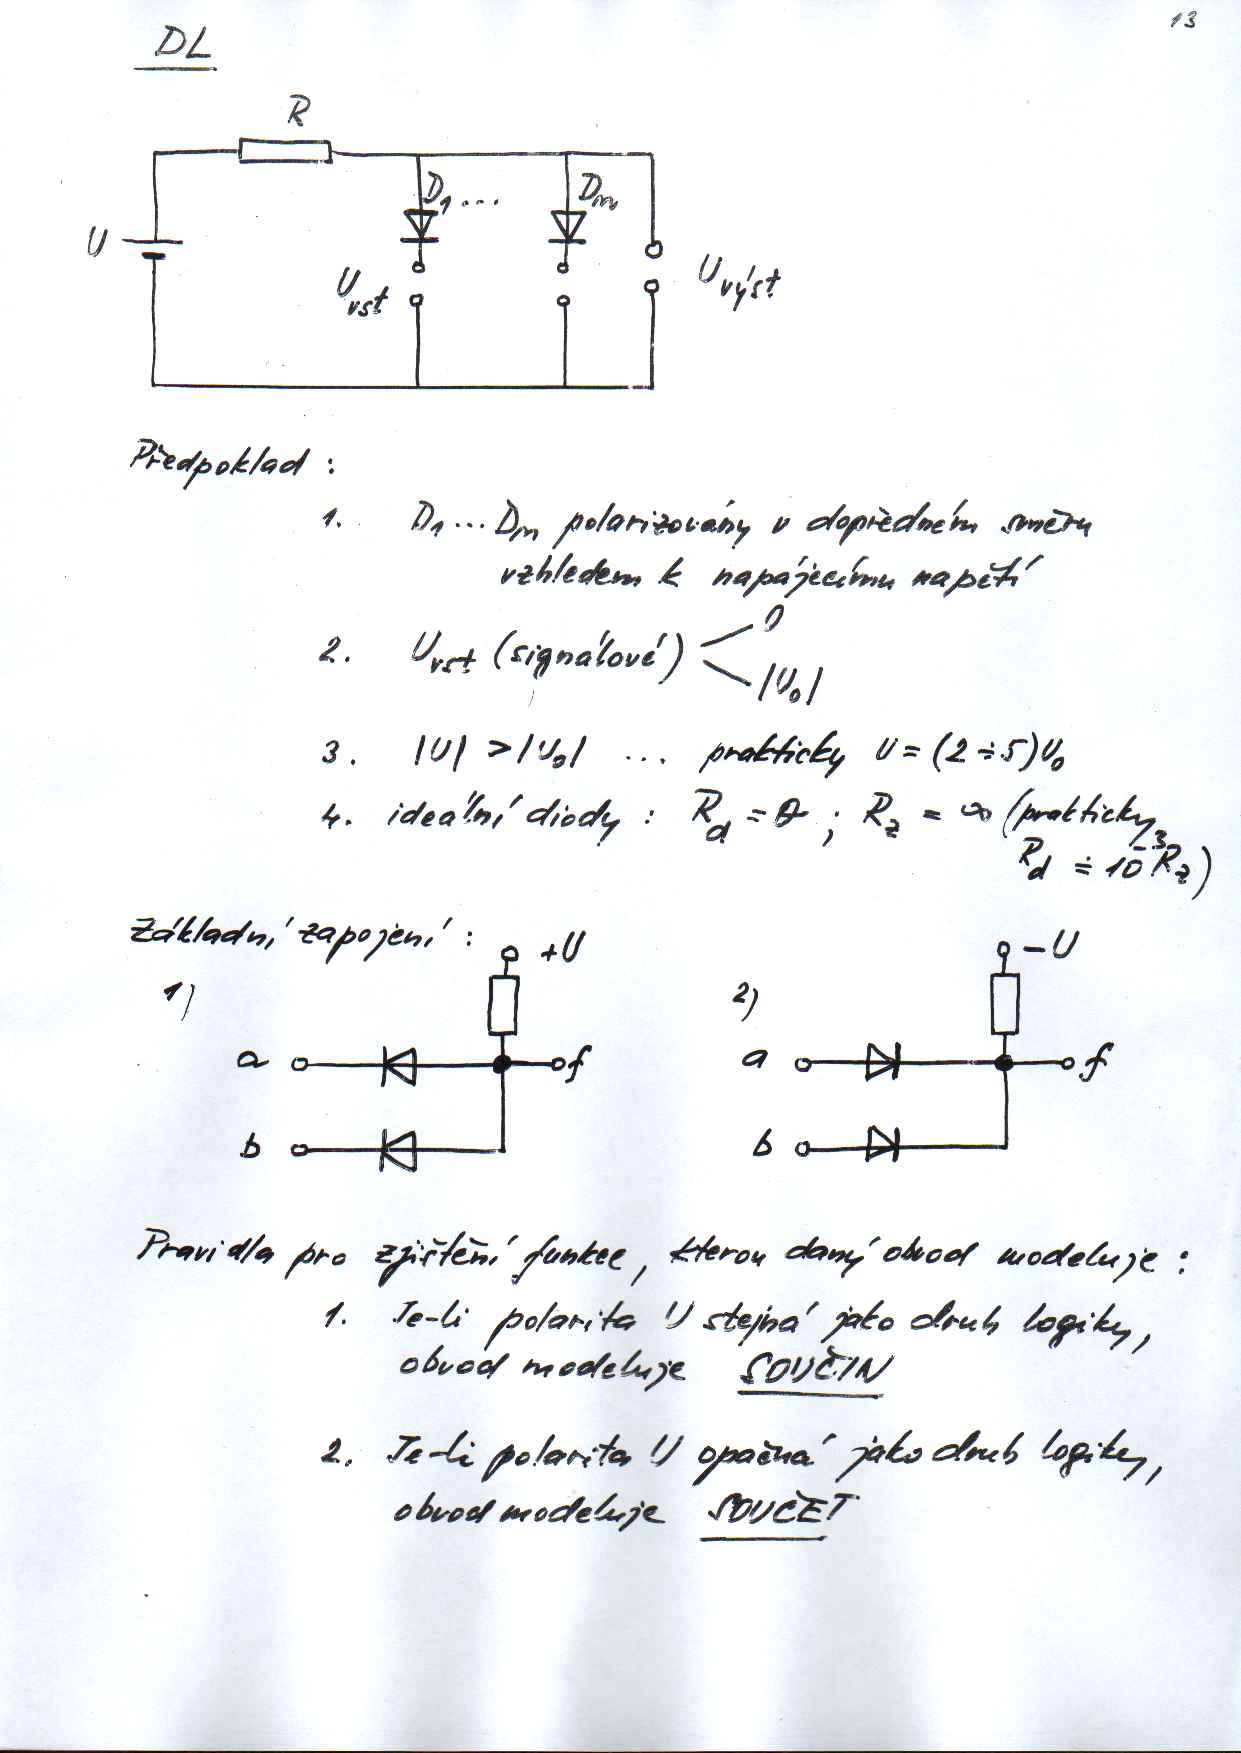 13
DL
R
D1...
Dm
U
Uvst
Uvýst
Předpoklad :
1. D1...Dm polarizovány v dopředném směru
vzhledem k napájecímu napětí
2. Uvst (signálové) 0
|U0|
3. |U| > |U0| ... prakticky U = (2 ÷ 5)U0
4. ideální diody : Rd = 0 ; Rz = ∞ (prakticky
Rd ≐ 10⁻³Rz)
Základní zapojení :
+U
-U
1)
2)
a
f
a
f
b
b
Pravidla pro zjištění funkce, kterou daný obvod modeluje :
1. Je-li polarita U stejná jako druh logiky,
obvod modeluje SOUČIN
2. Je-li polarita U opačná jako druh logiky,
obvod modeluje SOUČET